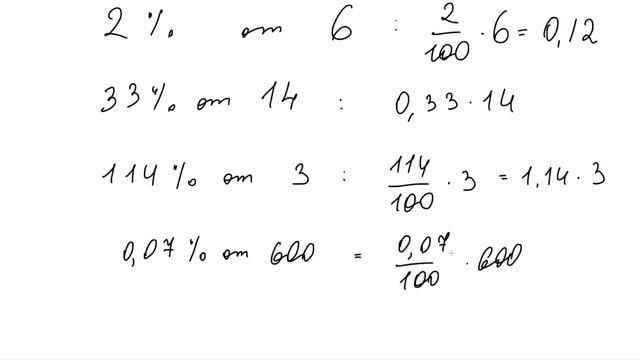 2% от 6 : 2/100 · 6 = 0,12
33% от 14 : 0,33 · 14
114% от 3 : 114/100 · 3 = 1,14 · 3
0,07% от 600 = 0,07/100 · 600